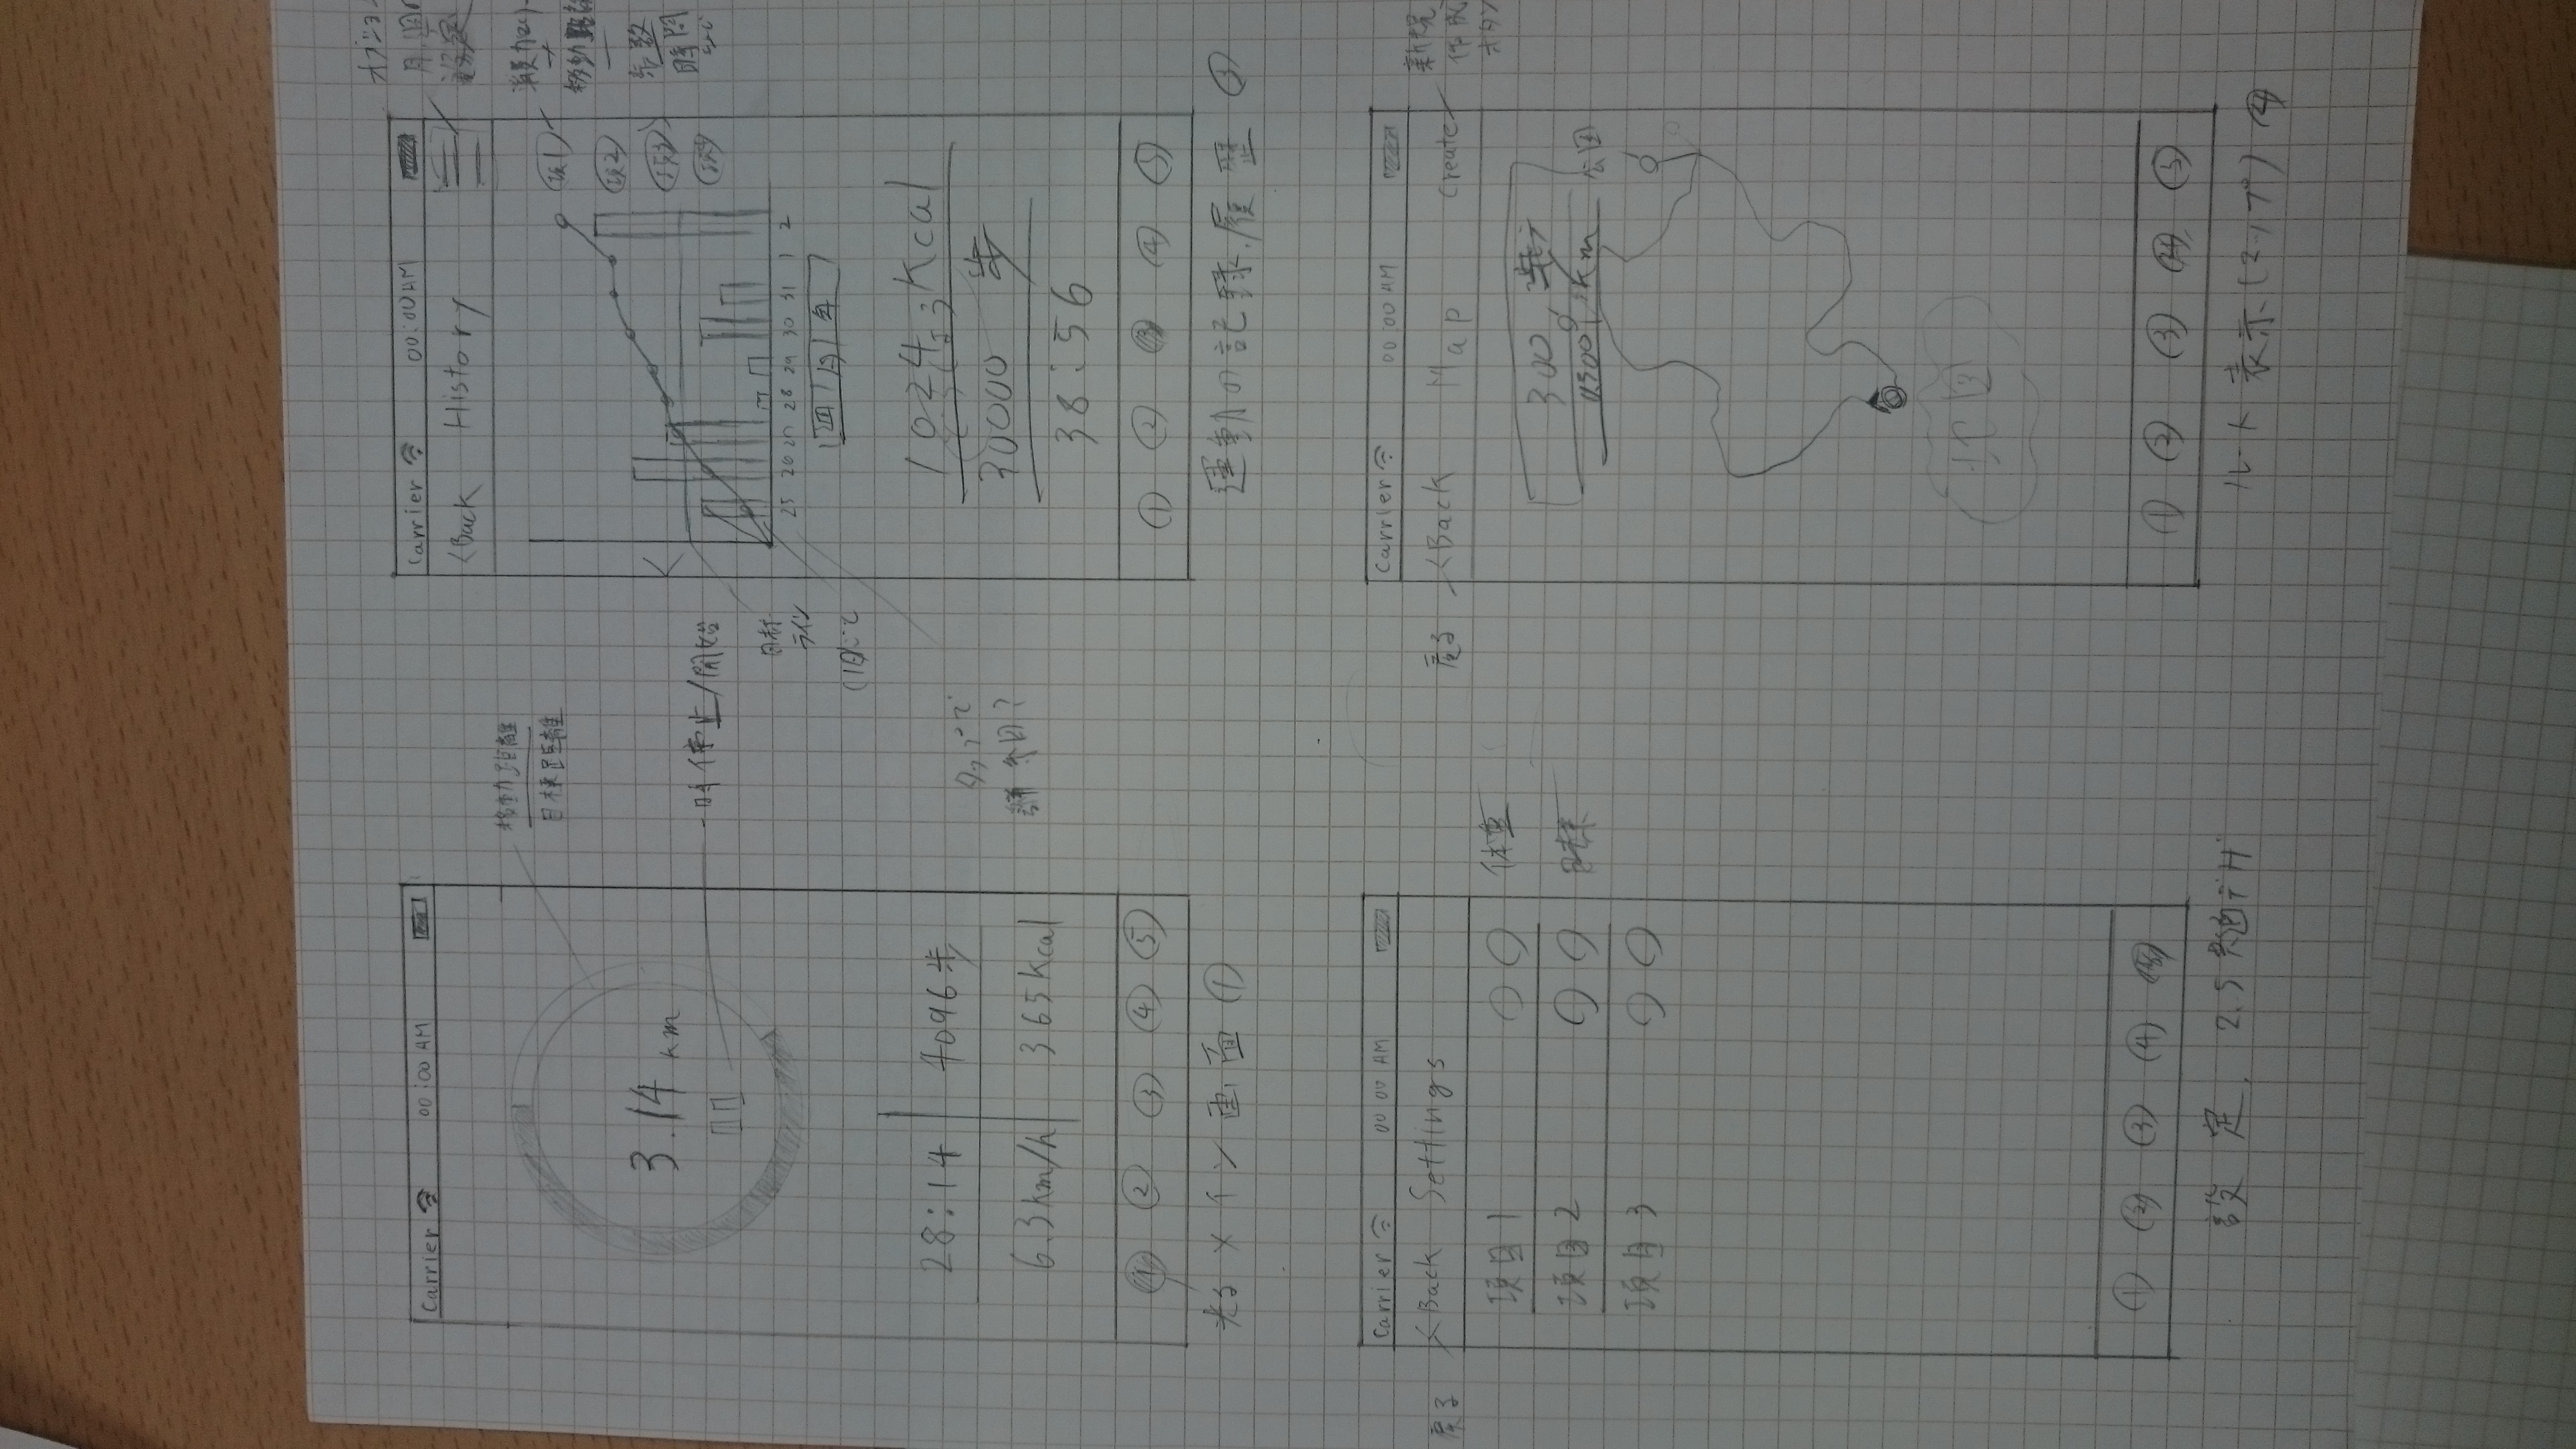 Carrier 00:00 AM
移動距離
目標距離
3.14 km
一時停止/開始
28:14 4096歩
6.3km/h 365kcal
① ② ③ ④ ⑤
光る メイン画面 ①
Carrier 00:00AM
<Back History
項1
項2
項3
項4
移動
歩数
時間
目標
ライン
(1日ごと
25 26 27 28 29 30 31 1 2
週 月 年
タップで
詳細?
1024 Kcal
30000 歩
38:56
① ② ③ ④ ⑤
運動の記録、履歴 ③
Carrier 00:00 AM
戻る <Back Settings
項目1 体重
項目2 目標
項目3
① ② ③ ④ ⑤
設定,
Carrier 00:00AM
戻る <Back Map Create
新規
作成
ボタン
300
km 公園
地図
① ② ③ ④ ⑤
ルート表示(マップ) ④